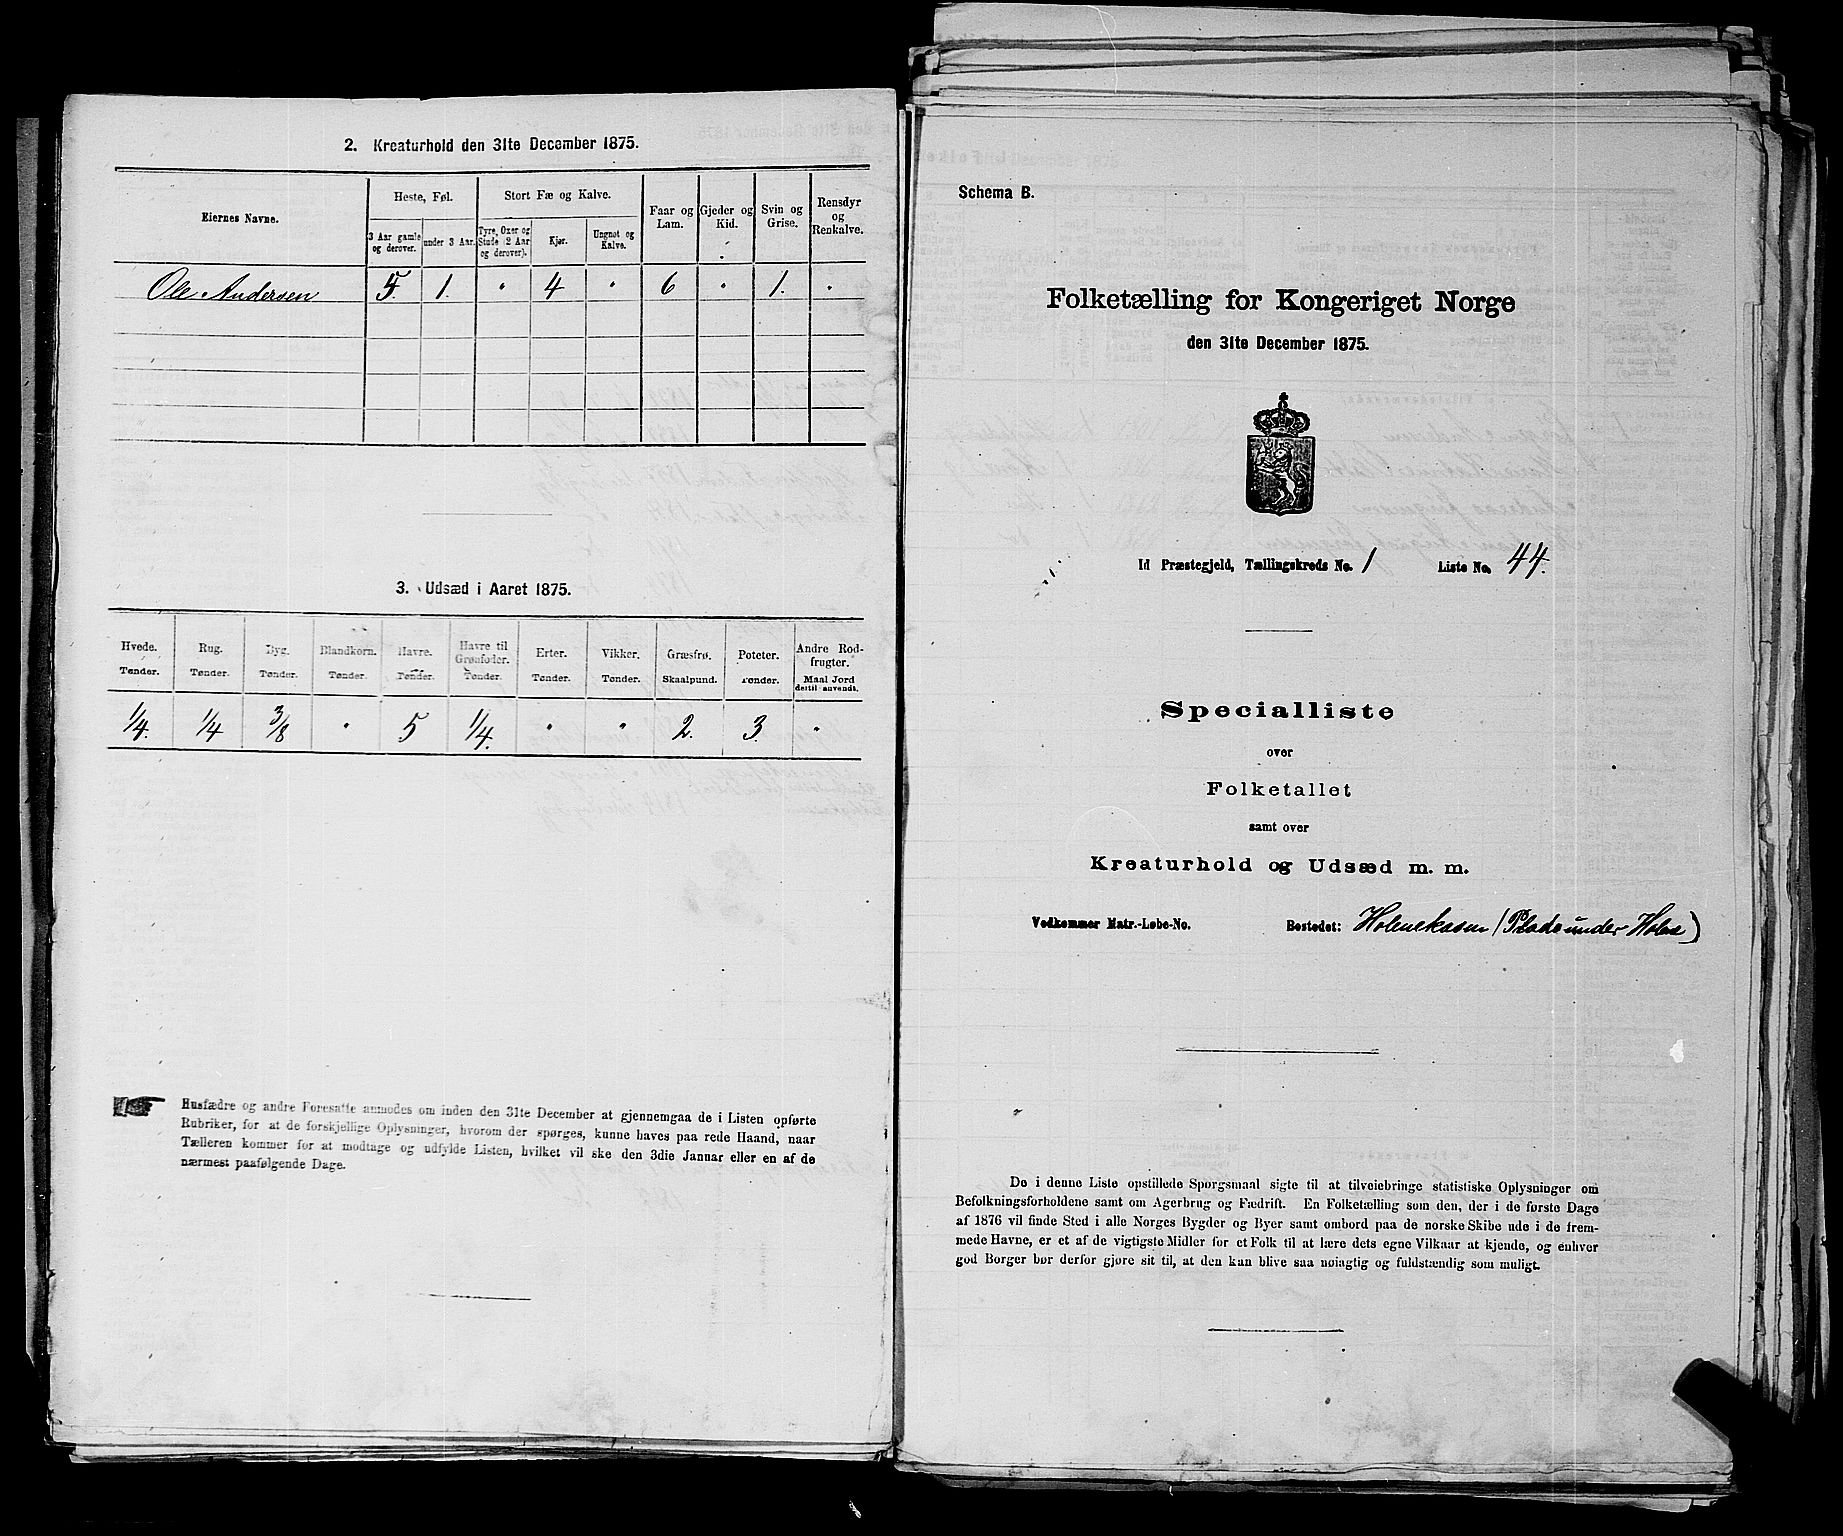 2. Kreaturhold den 31te December 1875.
Eiernes Navne.
Heste, Føl.
3 Aar gamle og derover.
under 3 Aar.
Stort Fæ og Kalve.
Tyre, Oxer og Stude (2 Aar og derover).
Kjør.
Ungnøt og Kalve.
Faar og Lam.
Gjeder og Kid.
Svin og Grise.
Rensdyr og Renkalve.
Ole Andersen 5. 1. " 4 " 6 " 1. "
3. Udsæd i Aaret 1875.
Hvede. Rug. Byg. Blandkorn. Havre. Havre til Grønfoder. Erter. Vikker. Græsfrø. Poteter. Andre Rodfrugter.
Tønder. Tønder. Tønder. Tønder. Tønder. Tønder. Tønder. Tønder. Skaalpund. Tønder. Maal Jord dertil anvendt.
1/4. 1/4 3/8 " 5 1/4. " " 2. 3. "
Husfædre og andre Foresatte anmodes om inden den 31te December at gjennemgaa de i Listen opførte
Rubriker, for at de forskjellige Oplysninger, hvorom der spørges, kunne haves paa rede Haand, naar
Tælleren kommer for at modtage og udfylde Listen, hvilket vil ske den 3die Januar eller en af de
nærmest paafølgende Dage.
Schema B.
Folketælling for Kongeriget Norge
den 31te December 1875.
Id Præstegjeld, Tællingskreds No. 1 Liste No. 44.
Specialliste
over
Folketallet
samt over
Kreaturhold og Udsæd m. m.
Vedkommer Matr.-Løbe-No. Bostedet: Holenekasen (Plads under Holene)
De i denne Liste opstillede Spørgsmaal sigte til at tilveiebringe statistiske Oplysninger om
Befolkningsforholdene samt om Agerbrug og Fædrift. En Folketælling som den, der i de første Dage
af 1876 vil finde Sted i alle Norges Bygder og Byer samt ombord paa de norske Skibe ude i de frem-
mede Havne, er et af de vigtigste Midler for et Folk til at lære dets egne Vilkaar at kjende, og enhver
god Borger bør derfor gjøre sit til, at den kan blive saa nøiagtig og fuldstændig som muligt.